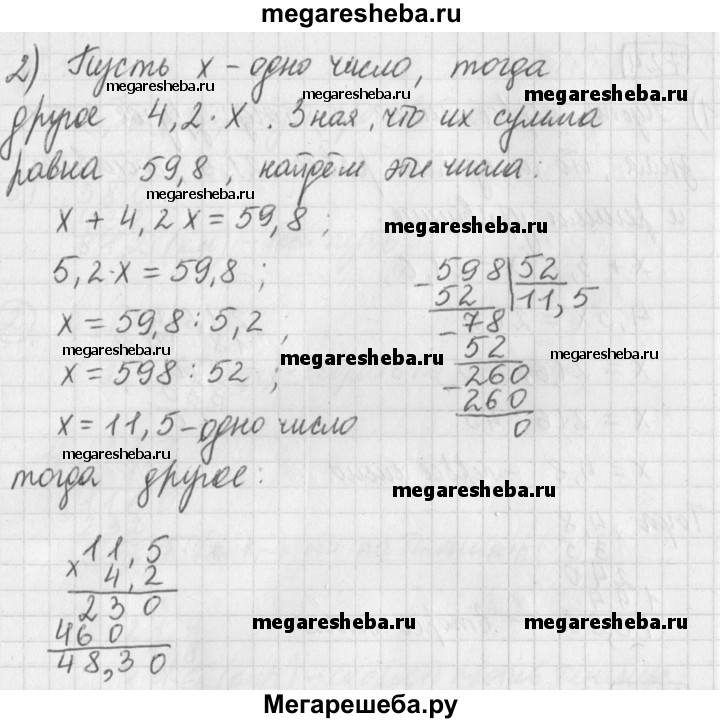 megaresheba.ru
2) Пусть x - одно число, тогда
megaresheba.ru megaresheba.ru megaresheba.ru
другое 4,2 · x . Зная, что их сумма
равна 59,8 , найдём эти числа:
megaresheba.ru
x + 4,2 x = 59,8 ;
megaresheba.ru
5,2 · x = 59,8 ;
x = 59,8 : 5,2 ;
megaresheba.ru megaresheba.ru megaresheba.ru
x = 598 : 52 ;
x = 11,5 - одно число
- 598 | 52
52 | 11,5
- 78
52
- 260
260
0
megaresheba.ru
тогда другое:
megaresheba.ru
11,5
x 4,2
230
460
48,30
megaresheba.ru megaresheba.ru
Мегарешеба.ру